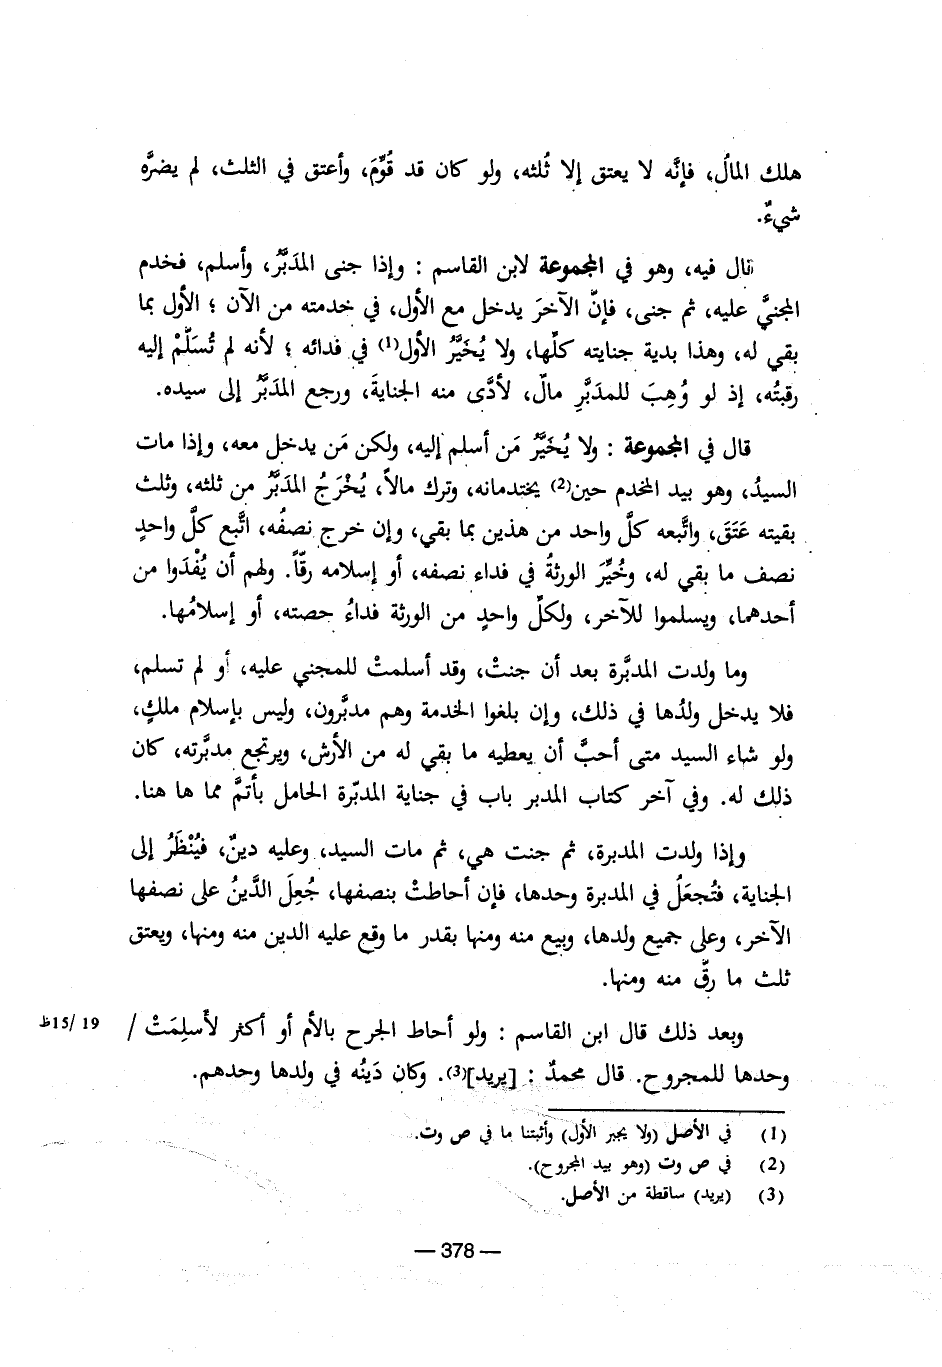 هلك المالُ، فإنَّه لا يعتق إلا ثُلثه، ولو كان قد قُوِّمَ، وأعتق في الثلث، لم يضرَّه
شيءٌ.
قال فيه، وهو في المجموعة لابن القاسم : وإذا جنى المدَبَّرُ، وأسلم، فخدم
المجنيَّ عليه، ثم جنى، فإنّ الآخرَ يدخل مع الأول، في خدمته من الآن ؛ الأول بما
بقي له، وهذا بدية جنايته كلِّها، ولا يُخَيَّرُ الأول(1) في فدائه ؛ لأنه لم تُسَلَّمْ إليه
رقبتُه، إذ لو وُهِبَ للمدبَّرِ مالٌ، لأدَّى منه الجنايةَ، ورجع المدَبَّرُ إلى سيده.
قال في المجموعة : ولا يُخَيَّرُ مَن أسلم إليه، ولكن مَن يدخل معه، وإذا مات
السيدُ، وهو بيد المخدم حين(2) يختدمانه، وترك مالاً، يُخْرَجُ المدَبَّرُ من ثلثه، وثلث
بقيته عَتَقَ، واتَّبعه كلَّ واحد من هذين بما بقي، وإن خرج نصفُه، اتَّبع كلَّ واحدٍ
نصف ما بقي له، وخُيِّرَ الورثةُ في فداء نصفه، أو إسلامه رقّاً. ولهم أن يُفْدَوا من
أحدهما، ويسلموا للآخر، ولكلِّ واحدٍ من الورثة فداءُ حصته، أو إسلامُها.
وما ولدت المدبَّرة بعد أن جنتْ، وقد أسلمتْ للمجني عليه، أو لم تسلم،
فلا يدخل ولدُها في ذلك، وإن بلغوا الخدمة وهم مدبَّرون، وليس بإسلام ملكٍ،
ولو شاء السيد متى أحبَّ أن يعطيه ما بقي له من الأرش، ويرتجع مدبَّرته، كان
ذلك له. وفي آخر كتاب المدبر باب في جناية المدبّرة الحامل بأتمَّ مما ها هنا.
وإذا ولدت المدبرة، ثم جنت هي، ثم مات السيد، وعليه دينٌ، فيُنْظَرُ إلى
الجناية، فتُجعَلُ في المدبرة وحدها، فإن أحاطتْ بنصفها، جُعِلَ الدَّينُ على نصفها
الآخر، وعلى جميع ولدها، وبيع منه ومنها بقدر ما وقع عليه الدين منه ومنها، ويعتق
ثلث ما رقّ منه ومنها.
وبعد ذلك قال ابن القاسم : ولو أحاط الجرح بالأم أو أكثر لأسلِمَتْ / 19 /15ظ
وحدها للمجروح. قال محمدٌ : [يريد](3). وكان دَينُه في ولدها وحدهم.
(1) في الأصل (ولا يجبر الأول) وأثبتنا ما في ص وت.
(2) في ص وت (وهو بيد المجروح).
(3) (يريد) ساقطة من الأصل.
— 378 —